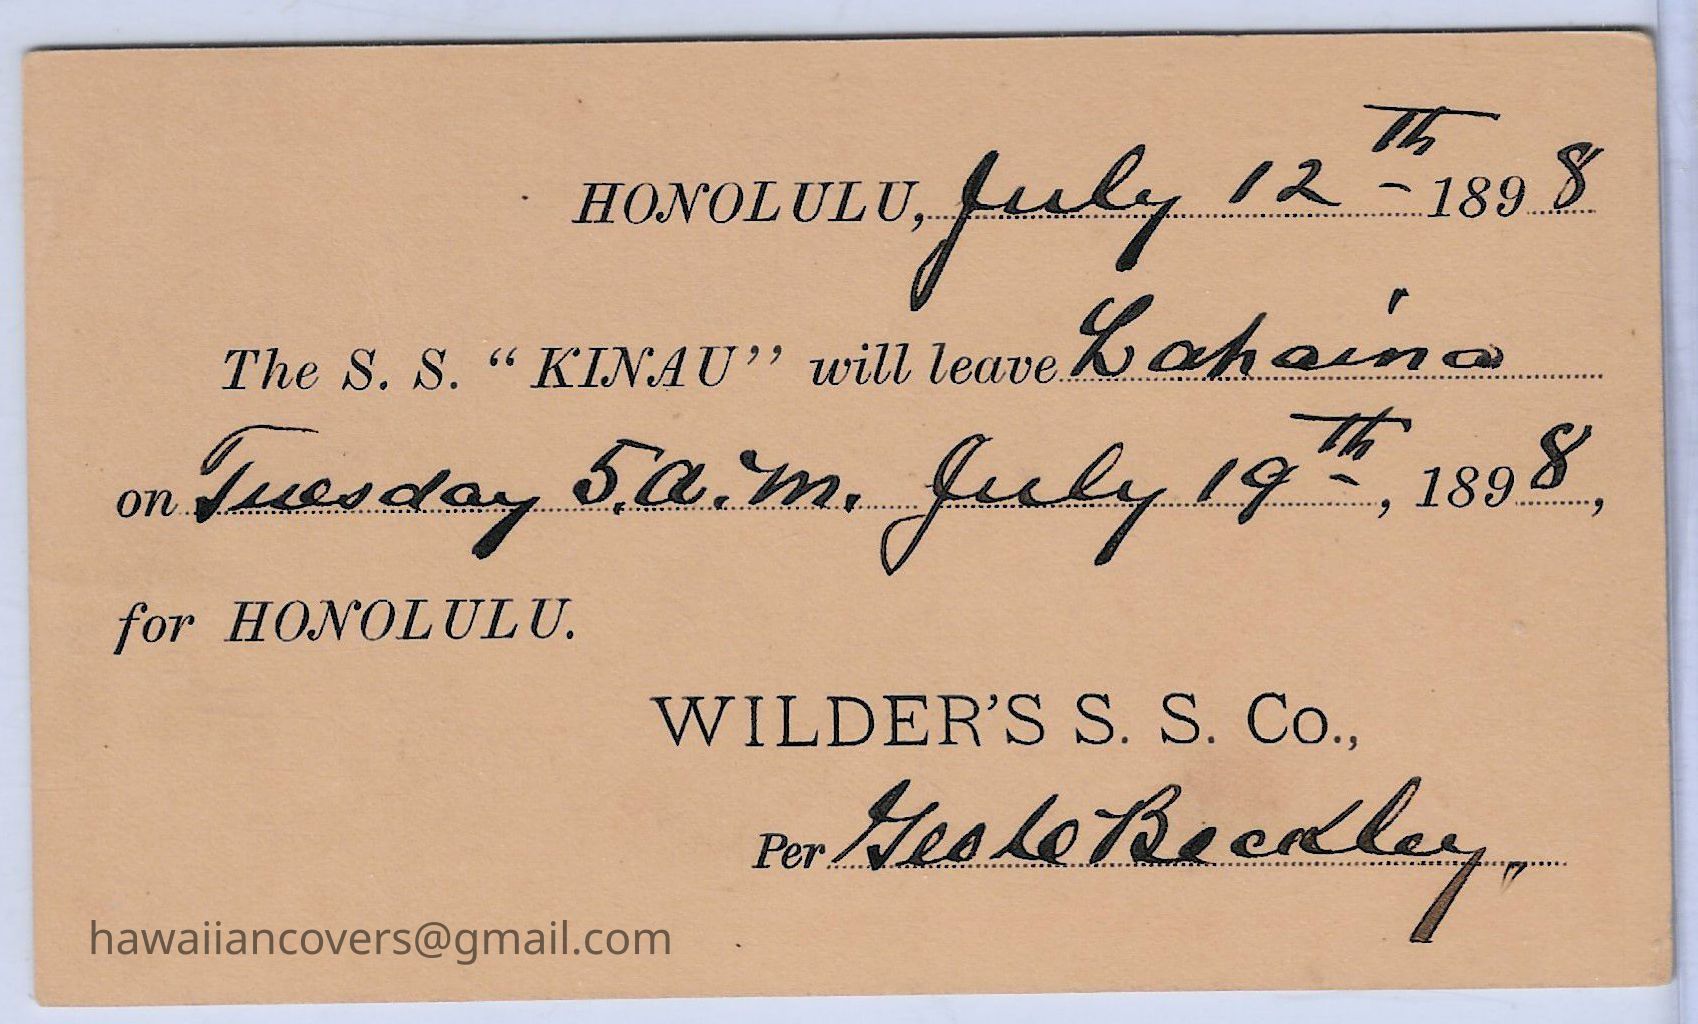 HONOLULU, July 12th 1898
The S. S. “KINAU” will leave Lahaina
on Tuesday 5. a. m. July 19th, 1898,
for HONOLULU.
WILDER'S S. S. Co.,
Per Beckley,
hawaiiancovers@gmail.com